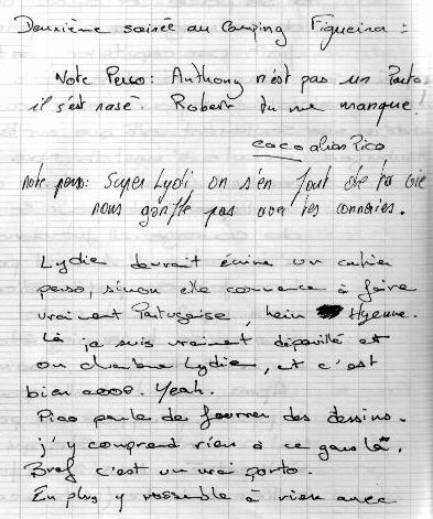 Deuxième soirée au Camping Figueira :
Note Perso : Anthony n'est pas un Porto
il s'est rasé. Robert tu me manque.
coco alias Pico
note perso : Super Lydi, on s'en fout de ta vie
nous gonfle pas avec tes conneries.
Lydie devrait écrire un cahier
perso, sinon elle commence à faire
vraiment Portugaise, hein Hyenne.
Là je suis vraiment dépouillé et
on Lydie, et c'est
bien aooo. Yeah.
Pico parle de fourrer des dessins.
j'y comprend rien à ce gars là.
Bref c'est un vrai porto.
En plus y ressemble à rien avec